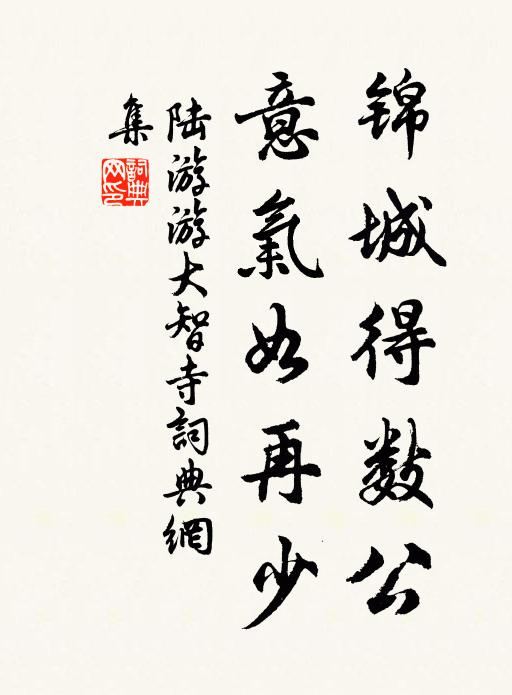 锦城得数公
意氣如再少
陆游游大智寺詞典網
集
詞典网印